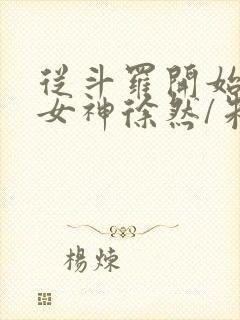 從斗羅開始
女神徐然/
楊煉